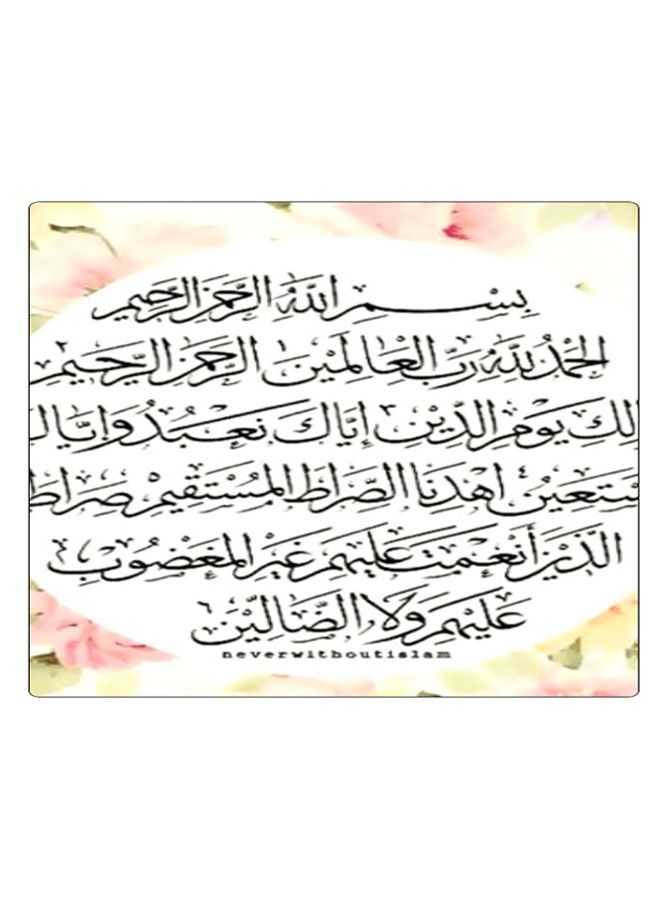 بِسْمِ اللَّهِ الرَّحْمَنِ الرَّحِيمِ
الحَمْدُ للَّهِ رَبِّ العَالَمِينَ ١ الرَّحْمَنِ الرَّحِيمِ ٢
الِكِ يَوْمِ الدِّينِ ٣ إِيَّاكَ نَعْبُدُ وَإِيَّاكَ
سْتَعِينُ ٤ اهْدِنَا الصِّرَاطَ المُسْتَقِيمَ ٥ صِرَاطَ
الَّذِينَ أَنْعَمْتَ عَلَيْهِمْ غَيْرِ المَغْضُوبِ
عَلَيْهِمْ وَلَا الضَّالِّينَ ٦
neverwithoutislam